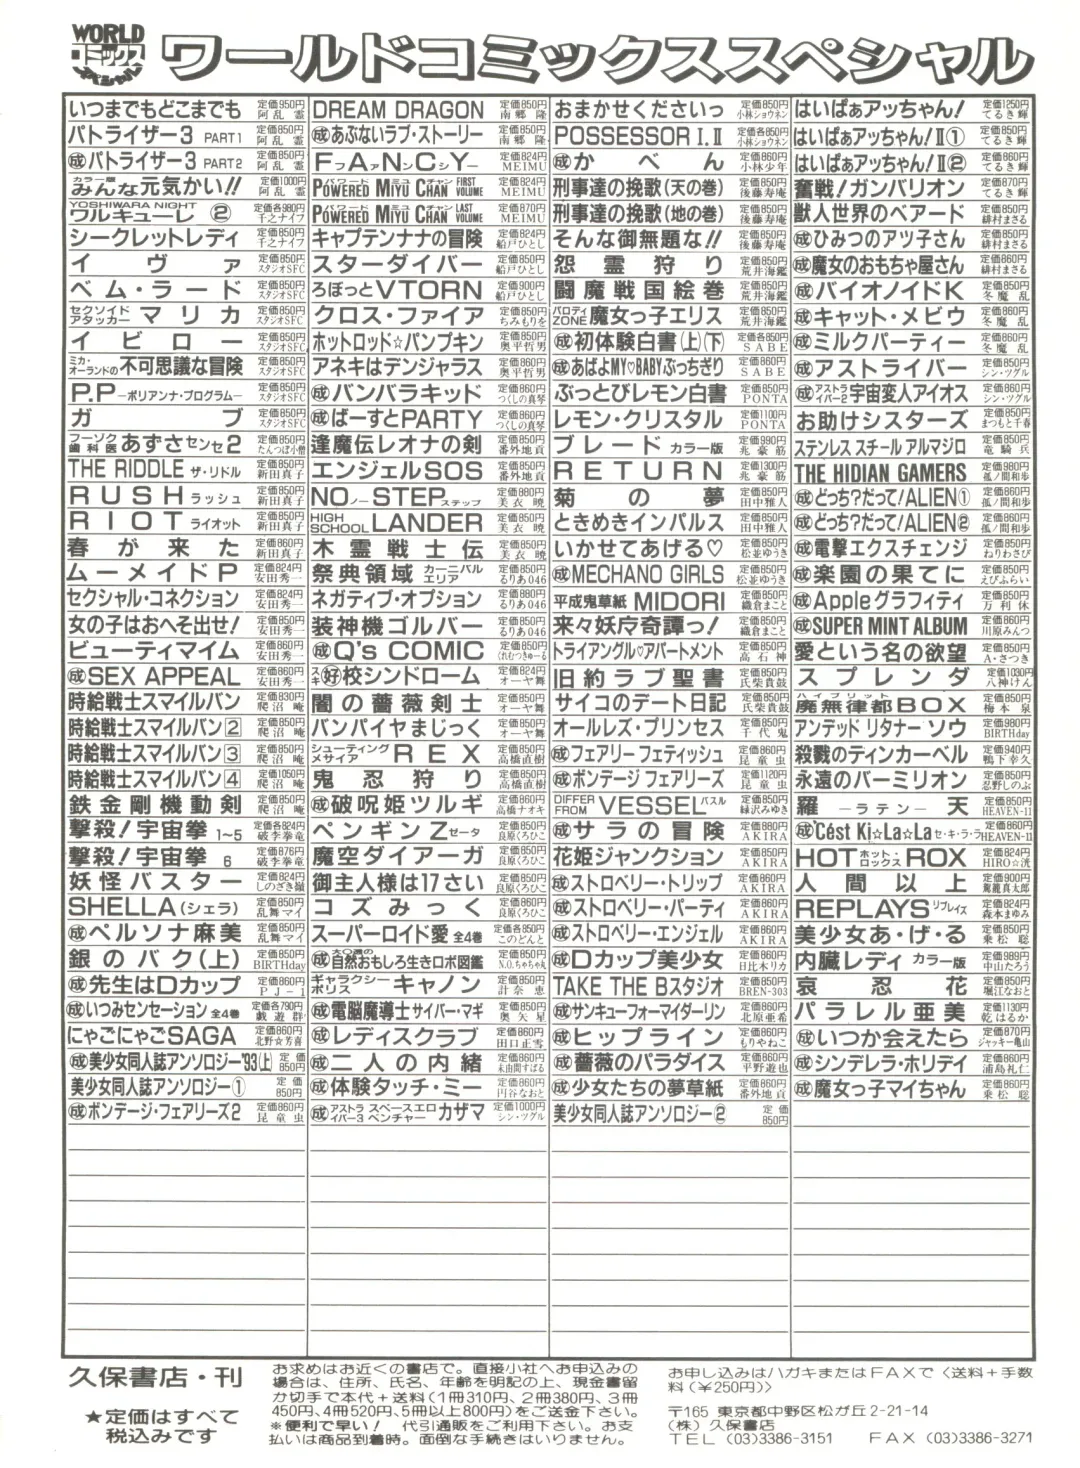 WORLD
コミックス
スペシャル
ワールドコミックススペシャル
いつまでもどこまでも 定価950円 阿乱霊
パトライザー3 PART1 定価850円 阿乱霊
㊛パトライザー3 PART2 定価850円 阿乱霊
カラー版 みんな元気かい!! 定価1000円 阿乱霊
YOSHIWARA NIGHT ワルキューレ② 定価各980円 千之ナイフ
シークレットレディ 定価850円 千之ナイフ
イヴァ 定価850円 スタジオSFC
ベム・ラード 定価850円 スタジオSFC
セクソイドアタッカー マリカ 定価850円 スタジオSFC
イビロー 定価850円 スタジオSFC
ミカ・オーランドの不可思議な冒険 定価850円 スタジオSFC
P.P─ポリアンナ・プログラム─ 定価850円 スタジオSFC
ガブ 定価850円 スタジオSFC
フーゾク歯科医 あずさセンセ2 定価850円 たんつぼ小僧
THE RIDDLE ザ・リドル 定価850円 新田真子
RUSH ラッシュ 定価850円 新田真子
RIOT ライオット 定価850円 新田真子
春が来た 定価860円 新田真子
ムーメイドP 定価824円 安田秀一
セクシャル・コネクション 定価824円 安田秀一
女の子はおへそ出せ! 定価850円 安田秀一
ビューティマイム 定価860円 安田秀一
成SEX APPEAL 定価860円 安田秀一
時給戦士スマイルバン 定価830円 爬沼唵
時給戦士スマイルバン2 定価850円
時給戦士スマイルバン3 定価850円
時給戦士スマイルバン4 定価1050円
鉄金剛機動剣 定価850円
撃殺!宇宙拳 1~5 定価各824円 破李拳竜
撃殺!宇宙拳 6 定価876円 破李拳竜
妖怪バスター 定価824円 しのざき嶺
SHELLA(シェラ) 定価850円 乱舞マイ
成ペルソナ麻美 定価850円 乱舞マイ
銀のバク(上) 定価850円 BIRTHday
成先生はDカップ 定価860円 PJ-1
成いつみセンセーション 全4巻 定価各790円 戯遊群
にゃごにゃごSAGA 定価860円 北野☆芳喜
成美少女同人誌アンソロジー'93(上) 定価850円
美少女同人誌アンソロジー① 定価850円
成ボンデージ・フェアリーズ2 定価860円 昆童虫
DREAM DRAGON 定価850円 南郷隆
成あぶないラブ・ストーリー 定価850円 南郷隆
FファAァNンCシY─ 定価824円 MEIMU
POWERED MIYU CHAN FIRST VOLUME 定価824円 MEIMU
POWERED MIYU CHAN LAST VOLUME 定価870円 MEIMU
キャプテンナナの冒険 定価824円 船戸ひとし
スターダイバー 定価850円 船戸ひとし
ろぼっとVTORN 定価900円 船戸ひとし
クロス・ファイア 定価850円 ちみもりを
ホットロッド☆パンプキン 定価850円 奥平哲男
アネキはデンジャラス 定価860円 奥平哲男
成バンバラキッド 定価860円 つくしの真琴
成ばーすとPARTY 定価860円 つくしの真琴
逢魔伝レオナの剣 定価850円 番外地貢
エンジェルSOS 定価850円 番外地貢
NOノーSTEPステップ 定価880円 美衣暁
HIGH SCHOOL LANDER 定価850円 美衣暁
木霊戦士伝 定価850円 美衣暁
祭典領域 カーニバルエリア 定価850円 るりあ046
ネガティブ・オプション 定価880円 るりあ046
装神機ゴルバー 定価850円 るりあ046
成Q's COMIC 定価850円
ス(好)校シンドローム 定価824円 オーヤ舞
闇の薔薇剣士 定価850円 オーヤ舞
バンパイヤまじっく 定価850円 オーヤ舞
シューティングメサイア REX 定価850円 高橋直樹
鬼忍狩り 定価850円 高橋直樹
成破呪姫ツルギ 定価860円 高橋ナオキ
ペンギンZゼータ 定価850円 良原くろひこ
魔空ダイアーガ 定価850円 良原くろひこ
御主人様は17さい 定価850円 良原くろひこ
コズみっく 定価860円 良原くろひこ
スーパーロイド愛 全4巻 定価各850円 このどんと
成大〇週の自然おもしろ生きロボ図鑑 定価850円
ギャラクシーポリス キャノン 定価850円 計奈恵
成電脳魔導士サイバー・マギ 定価850円 奥久星
成レディスクラブ 定価860円 田口正雪
成二人の内緒 定価860円 未由間すばる
成体験タッチ・ミー 定価860円 円谷なおと
成アストライバー3 スペースエロベンチャー カザマ 定価1000円 シン・ツグル
おまかせくださいっ 定価850円 小林ショウネン
POSSESSOR I.II 定価各850円 小林ショウネン
成かべん 定価860円 小林少年
刑事達の挽歌(天の巻) 定価850円 後藤寿庵
刑事達の挽歌(地の巻) 定価850円 後藤寿庵
そんな御無題な!! 定価850円 後藤寿庵
怨霊狩り 定価850円 荒井海鑑
闘魔戦国絵巻 定価850円 荒井海鑑
パロディZONE魔女っ子エリス 定価850円 荒井海鑑
成初体験白書(上)(下) 定価各850円 SABE
成あばよMY♡BABYぶっちぎり 定価860円 SABE
ぶっとびレモン白書 定価850円 PONTA
レモン・クリスタル 定価1100円 PONTA
ブレード カラー版 定価990円 兆豪筋
RETURN 定価1300円 兆豪筋
菊の夢 定価850円 田中雅人
ときめきインパルス 定価850円 田中雅人
いかせてあげる♡ 定価850円 松並ゆうき
成MECHANO GIRLS 定価850円 松並ゆうき
平成鬼草紙 MIDORI 定価850円 織倉まこと
来々妖庁奇譚っ! 定価850円 織倉まこと
トライアングル♡アパートメント 定価850円 高石神
旧約ラブ聖書 定価850円 氏柴貴鼓
サイコのデート日記 定価850円 氏柴貴鼓
オールレズ・プリンセス 定価850円 千代鬼
成フェアリーフェティッシュ 定価860円 昆童虫
成ボンデージ フェアリーズ 定価1120円 昆童虫
DIFFER FROM VESSELバスル 定価850円 緑沢みゆき
成サラの冒険 定価880円 AKIRA
花姫ジャンクション 定価850円 AKIRA
成ストロベリー・トリップ 定価860円 AKIRA
成ストロベリー・パーティ 定価860円 AKIRA
成ストロベリー・エンジェル 定価850円 AKIRA
成Dカップ美少女 定価860円 日比木リカ
TAKE THE Bスタジオ 定価850円 BREN-303
成サンキューフォーマイダーリン 定価860円 北原亜希
成ヒップライン 定価860円 もりやねこ
成薔薇のパラダイス 定価860円 平野遊也
成少女たちの夢草紙 定価860円 番外地貢
美少女同人誌アンソロジー② 定価850円
はいぱぁアッちゃん! 定価1250円 てるき輝
はいぱぁアッちゃん!II① 定価860円 てるき輝
はいぱぁアッちゃん!II② 定価860円 てるき輝
奮戦!ガンバリオン 定価870円 てるき輝
獣人世界のベアード 定価850円 緋村まさる
成ひみつのアツ子さん 定価850円 緋村まさる
成魔女のおもちゃ屋さん 定価860円 緋村まさる
成バイオノイドK 定価850円 冬魔乱
成キャット・メビウ 定価860円 冬魔乱
成ミルクパーティー 定価850円 冬魔乱
成アストライバー 定価850円 シン・ツグル
成アストライバー2宇宙変人アイオス 定価860円 シン・ツグル
お助けシスターズ 定価850円 まつもと千春
ステンレス スチール アルマジロ 定価850円 竜騎兵
THE HIDIAN GAMERS 定価980円 孤ノ間和歩
成どっち?だって!ALIEN① 定価860円 孤ノ間和歩
成どっち?だって!ALIEN② 定価860円 孤ノ間和歩
成電撃エクスチェンジ 定価850円 ねりわさび
成楽園の果てに 定価850円 えびふらい
成Appleグラフィティ 定価850円 万利休
成SUPER MINT ALBUM 定価860円 川原みんつ
愛という名の欲望 定価850円 A・さつき
スプレンダ 定価1030円 八神けん
ハイブリット 廃無律都BOX 定価850円 梅本泉
アンデッド リタナー ソウ 定価980円 BIRTHday
殺戮のティンカーベル 定価940円 鴨下幸久
永遠のバーミリオン 定価850円 忍野しのぶ
羅─ラテン─天 定価850円 HEAVEN-11
成C'ést Ki☆La☆Laセ・キ・ラ・ラ 定価860円 HEAVEN-11
HOTホット・ロックスROX 定価824円 HIRO☆洸
人間以上 定価900円 駕籠真太郎
REPLAYSリプレイズ 定価824円 森本まゆみ
美少女あ・げ・る 定価850円 乗松聡
内臓レディ カラー版 定価989円 中山たろう
哀忍花 定価850円 堀江なおと
パラレル亜美 定価1130円 乾はるか
成いつか会えたら 定価870円 ジャッキー亀山
成シンデレラ・ホリデイ 定価860円 浦島礼仁
成魔女っ子マイちゃん 定価860円 乗松聡
久保書店・刊
★定価はすべて
税込みです
お求めはお近くの書店で。直接小社へお申込みの
場合は、住所、氏名、年齢を明記の上、現金書留
か切手で本代+送料(1冊310円、2冊380円、3冊
450円、4冊520円、5冊以上800円)をご送金下さい。
※便利で早い! 代引通販をご利用下さい。お支
払いは商品到着時。面倒な手続きはいりません。
お申し込みはハガキまたはFAXで〈送料+手数
料(¥250円)〉
〒165 東京都中野区松が丘2-21-14
(株)久保書店
TEL (03)3386-3151 FAX (03)3386-3271